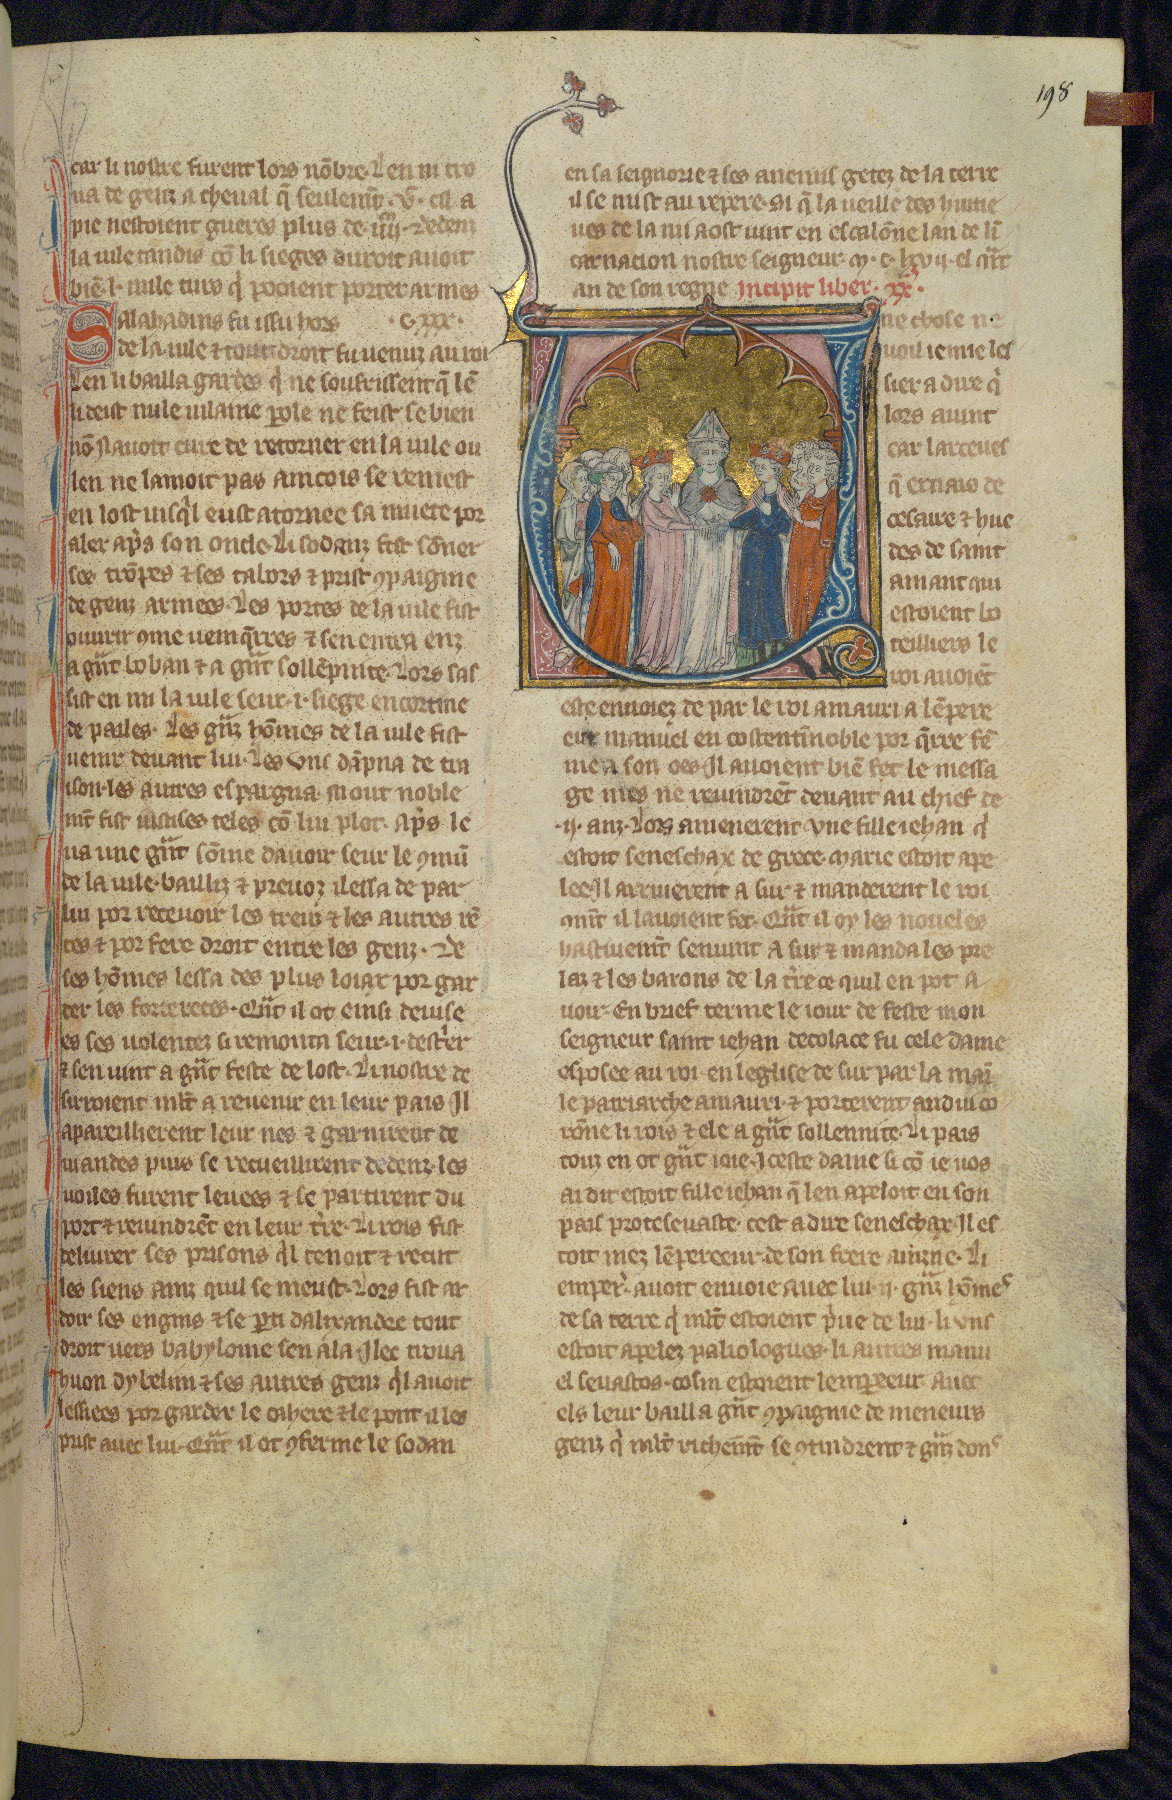 198
car li nostre furent lors nōbre. Len ni tro
ua de genz a cheual q̄ seulemt̄ .vͨ. cil a
pie nestoient gueres plus de .iiijͫ. Dedenz
la uile tandis cō li sieges duroit auoit
biē .l. mile turs q̓ pooient porter armes
Salahadins fu issu hors .C.xxx.
de la uile et tout droit fu uenuz au roi
Len li bailla gardes q̓ ne soufrissent q̄ lē
li deist nule uilainne parole ne feist se bien
nō il auoit cure de retorner en la uile ou
len ne lamoit pas aincois se remest
en lost iusq̓l eust atornee sa muete por
aler ap̓s son oncle. Li sodanz fist sōner
ses trōpes et ses tabors et prist ꝯpaignie
de genz armees. Les portes de la uile fist
ouurir ꝯme uemq̄rres et sen entra enz
a grāt boban et a grāt sollēpnite. Lors sas
sist en mi la uile seur .i. siege encortine
de pailes. Les grāz hōmes de la uile fist
uenir deuant lui. Les vns dāpna de tra
ison. les autres espargna. Mout noble
mt̄ fist iustises teles cō lui plot. Ap̓s le
ua une grāt sōme dauoir seur le ꝯmū
de la uile. bailliz et preuoz i lessa de par
lui por receuoir les treuz et les autres rē
tes et por fere droit entre les genz. De
ses hōmes lessa des plus loiax por gar
der les forterétes. Qāt il ot einsi deuise
es ses uolentez si remonta seur .i. destrier
et sen uint a grāt feste de lost. Li nostre de
sirroient mlt̄ a reuenir en leur pais Il
apareillierent leur nes et garnirent de
uiandes puis se recueillirent dedenz. les
uoiles furent leuees et se partirent du
port et reuindrēt en leur t̄re. Li rois fist
deliurer ses prisons q̓l tenoit et recut
les siens ainz quil se meust. Lors fist ar
doir ses engins et se parti dalixandre tout
droit uers babyloine sen ala. Ilec troua
huon dybelim et ses autres genz q̓l auoit
lessiees por garder le cahere et le pont il les
prist auec lui. Qāt il ot ꝯferme le sodan
en sa seignorie et ses anemis getez de la terre
il se mist au repere. Si q̄ la ueille des huitie
ues de la mi aost uint en escalōne lan de lī
carnation nostre seigneur .M.C.lxvij. el qāt
an de son regne Incipit liber .XX.
Une chose ne
uoil ie mie les
sier a dire q̓
lors auint
car larceues
q̄ ernais de
cesaire et hue
des de saint
amant qui
estoient bo
teilliers le
roi auoiēt
este enuoiez de par le roi amauri a lēpere
eur manuel en costentīnoble por q̄rre fē
me a son oes. Il auoient biē fet le messa
ge mes ne reuindrēt deuant au chief de
.ij. anz. Lors amenerent vne fille iehan q̓
estoit seneschax de grece. Marie estoit ape
lee. Il arriuerent a sur et manderent le roi
ꝯmt̄ il lauoient fet. Qāt il oy les noueles
hastiuemt̄ senuint a sur et manda les pre
laz et les barons de la t̄re ce quil en pot a
uoir. En brief terme le iour de feste mon
seigneur saint iehan decolace fu cele dame
esposee au roi en leglise de sur par la mai
le patriarche amauri. et porterent andui co
rōne li rois et ele a grāt sollennite. Li pais
touz en ot grāt ioie. Iceste dame si cō ie uos
ai dit estoit fille iehan q̄ len apeloit en son
pais protesevaste. cest a dire seneschax. Il es
toit niez lēpereeur de son frere ainzne. Li
emper̓. auoit enuoie auec lui .ij. grāz hōmes
de sa terre q̓ mlt̄ estoient p̓ue de lui. li vns
estoit apelez paliologues. li autres manu
el seuastos. cosin estoient lempereeur auec
els leur bailla grāt ꝯpaignie de meneurs
genz q̓ mlt̄ richemt̄ se ꝯtindrent et grāz dons